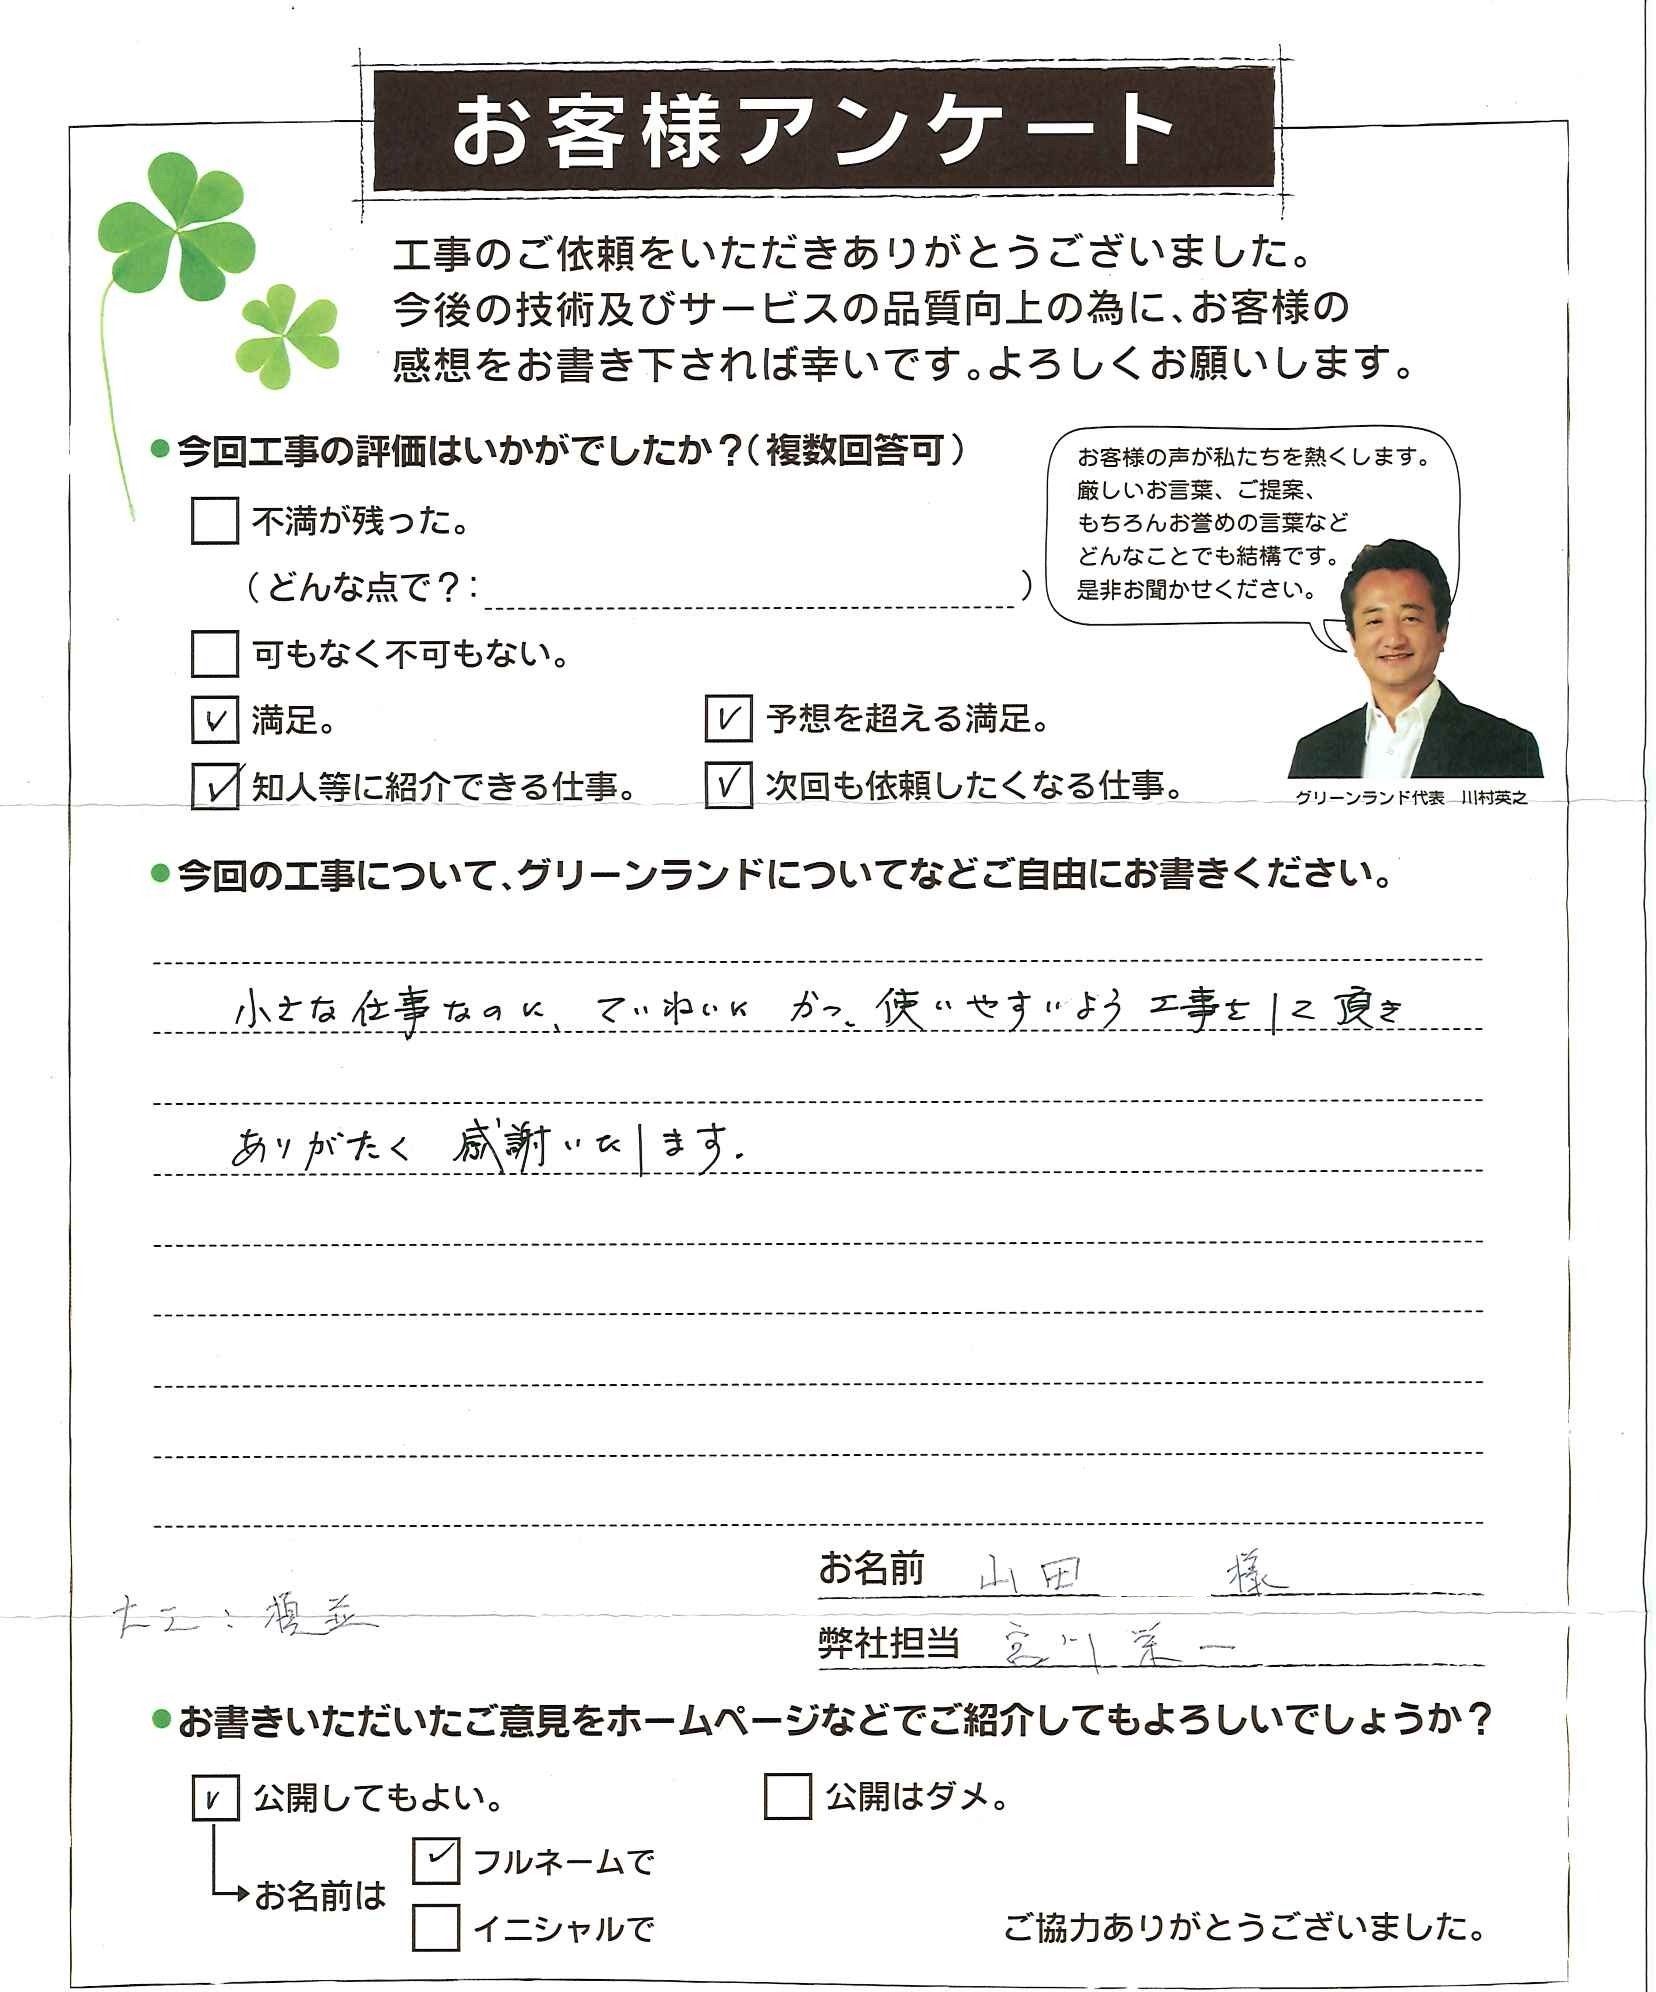 お客様アンケート
工事のご依頼をいただきありがとうございました。
今後の技術及びサービスの品質向上の為に、お客様の
感想をお書き下されば幸いです。よろしくお願いします。
今回工事の評価はいかがでしたか？（複数回答可）
不満が残った。
（どんな点で？：　）
可もなく不可もない。
満足。
予想を超える満足。
知人等に紹介できる仕事。
次回も依頼したくなる仕事。
お客様の声が私たちを熱くします。
厳しいお言葉、ご提案、
もちろんお誉めの言葉など
どんなことでも結構です。
是非お聞かせください。
グリーンランド代表　川村英之
今回の工事について、グリーンランドについてなどご自由にお書きください。
小さな仕事なのに、ていねいに かつ、使いやすいよう 工事をして頂き
ありがたく 感謝いたします.
お名前 山田 様
弊社担当 宮川 栄一
お書きいただいたご意見をホームページなどでご紹介してもよろしいでしょうか？
公開してもよい。
公開はダメ。
お名前は
フルネームで
イニシャルで
ご協力ありがとうございました。